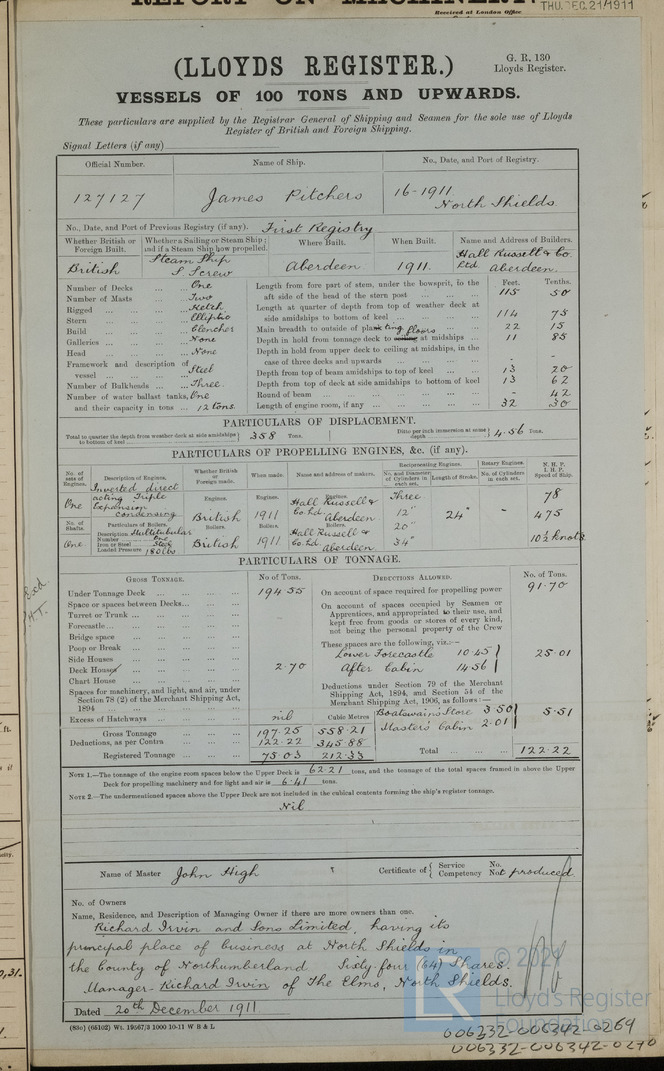 REPORT ON MACHINERY
Received at London Office
THU. DEC. 21/1911
(LLOYDS REGISTER.)
G. R. 130
Lloyds Register.
VESSELS OF 100 TONS AND UPWARDS.
These particulars are supplied by the Registrar General of Shipping and Seamen for the sole use of Lloyds
Register of British and Foreign Shipping.
Signal Letters (if any)
Official Number. Name of Ship. No., Date, and Port of Registry.
127127 James Pitchers 16-1911 North Shields
No., Date, and Port of Previous Registry (if any). First Registry
Whether British or Foreign Built. Whether a Sailing or Steam Ship; and if a Steam Ship how propelled. Where Built. When Built. Name and Address of Builders.
British Steam Ship S Screw Aberdeen 1911. Hall Russell & Co. Ltd. Aberdeen.
Number of Decks ... One
Number of Masts ... Two
Rigged ... Ketch
Stern ... Elliptic
Build ... Clencher
Galleries ... None
Head ... None
Framework and description of vessel ... Steel
Number of Bulkheads ... Three.
Number of water ballast tanks, One
and their capacity in tons ... 12 tons
Feet. Tenths.
Length from fore part of stem, under the bowsprit, to the
aft side of the head of the stern post 115 50
Length at quarter of depth from top of weather deck at
side amidships to bottom of keel ... 114 75
Main breadth to outside of plating 22 15
Depth in hold from tonnage deck to ceiling floors at midships ... 11 85
Depth in hold from upper deck to ceiling at midships, in the
case of three decks and upwards - -
Depth from top of beam amidships to top of keel 13 20
Depth from top of deck at side amidships to bottom of keel 13 62
Round of beam - 42
Length of engine room, if any 32 30
PARTICULARS OF DISPLACEMENT.
Total to quarter the depth from weather deck at side amidships to bottom of keel 358 Tons. Ditto per inch immersion at same depth 4.56 Tons.
PARTICULARS OF PROPELLING ENGINES, &c. (if any).
No. of sets of Engines. Description of Engines. Whether British or Foreign made. When made. Name and address of makers. Reciprocating Engines. Rotary Engines. N. H. P. I. H. P. Speed of Ship.
No. and Diameter of Cylinders in each set. Length of Stroke. No. of Cylinders in each set.
One Inverted direct acting Triple Expansion condensing
Engines. British Engines. 1911 Engines. Hall Russell & Co. Ld. Aberdeen
Three 12" 20" 34" 24" 78 475 10½ knots
No. of Shafts. Particulars of Boilers.
One Description Multitubular
Number One
Iron or Steel Steel
Loaded Pressure 180 lbs
Boilers. British Boilers. 1911 Boilers. Hall Russell & Co. Ld. Aberdeen
PARTICULARS OF TONNAGE.
GROSS TONNAGE. No of Tons.
Under Tonnage Deck ... 194 55
Space or spaces between Decks...
Turret or Trunk ...
Forecastle...
Bridge space
Poop or Break
Side Houses
Deck Houses 2.70
Chart House
Spaces for machinery, and light, and air, under
Section 78 (2) of the Merchant Shipping Act,
1894
Excess of Hatchways nil Cubic Metres
Gross Tonnage 197.25 558.21
Deductions, as per Contra 122.22 345.88
Registered Tonnage 75.03 212.33
DEDUCTIONS ALLOWED. No. of Tons.
On account of space required for propelling power 91.70
On account of spaces occupied by Seamen or
Apprentices, and appropriated to their use, and
kept free from goods or stores of every kind,
not being the personal property of the Crew
These spaces are the following, viz.:—
Lower Forecastle 10.45
After Cabin 14.56
25.01
Deductions under Section 79 of the Merchant
Shipping Act, 1894, and Section 54 of the
Merchant Shipping Act, 1906, as follows:—
Boatswain's Store 3.50
Master's Cabin 2.01
5.51
Total ... 122.22
NOTE 1.—The tonnage of the engine room spaces below the Upper Deck is 62.21 tons, and the tonnage of the total spaces framed in above the Upper
Deck for propelling machinery and for light and air is 6.41 tons.
NOTE 2.—The undermentioned spaces above the Upper Deck are not included in the cubical contents forming the ship's register tonnage.
Nil
Name of Master John High Certificate of { Service Competency No. Not produced
No. of Owners
Name, Residence, and Description of Managing Owner if there are more owners than one.
Richard Irvin and Sons Limited, having its
principal place of business at North Shields in
the County of Northumberland Sixty-four (64) Shares.
Manager- Richard Irvin of The Elms, North Shields.
Dated 20th December 1911
(830) (65102) Wt. 19567/3 1000 10-11 W B & L
© 202
LR
Lloyd's Register
Foundation
006332-006342-0269
006332-006342-0270